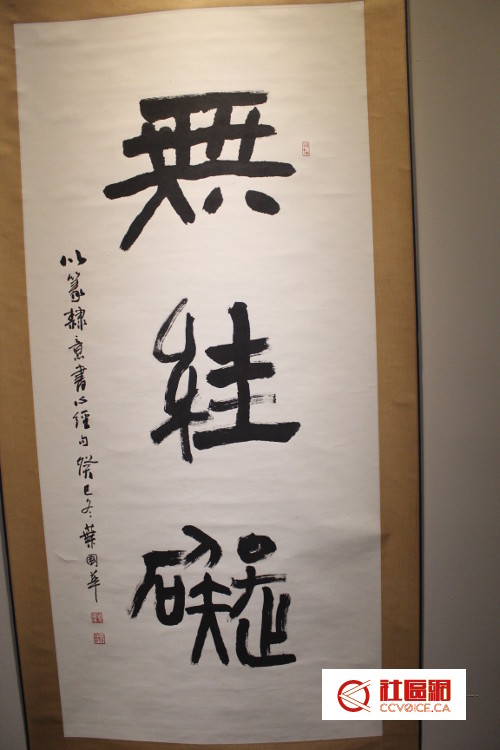 無罣礙
以篆隸意書心經句癸巳冬葉國華
社區網
CCVOICE.CA